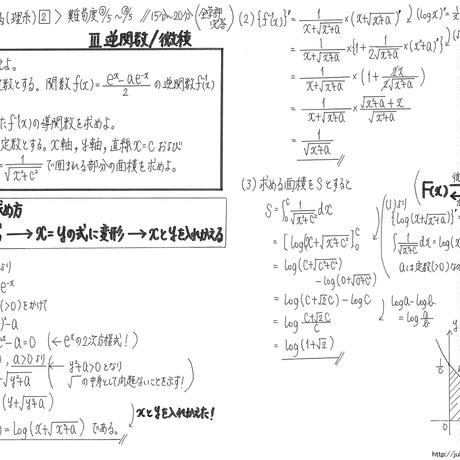 (理系) 2 > 難易度 // 15分〜20分
III 逆関数/微積
よ。
定数とする。関数 f(x)= (e^x - ae^-x)/2 の逆関数 f^-1(x)
た f^-1(x)の導関数を求めよ。
定数とする。x軸, y軸, 直線 x=c および
= 1/√(x²+c²) で囲まれる部分の面積を求めよ。
求め方
→ x=yの式に変形 → xとyを入れかえる
より
e^-x
(>0)をかけて
)²-a
e^x-a=0 (← e^xの2次方程式!)
), a>0より
+√(y²+a)
y²+a>0となり
√ の中身として問題ないことを示す!
(y+√(y²+a))
xとyを入れかえた!
)=log(x+√(x²+a)) である。
(2) {f^-1(x)}' = 1/(x+√(x²+a)) × (x+√(x²+a))'
(log x)'=
= 1/(x+√(x²+a)) × {1+ 1/(2√(x²+a)) × (x²+a)'}
= 1/(x+√(x²+a)) × (1+ 2x/(2√(x²+a)))
= 1/(x+√(x²+a)) × (√(x²+a)+x)/√(x²+a)
= 1/√(x²+a)
(3) 求める面積をSとすると
S=∫₀^c 1/√(x²+c²) dx
= [log(x+√(x²+c²))]₀^c
= log(c+√(c²+c²))
-log(0+√(0+c²))
= log(c+√2c)-log c
= log (c+√2c)/c
= log(1+√2)
log a-log b
=log a/b
F(x)
(1)より
{log(x+√(x²+a))}'
∫ 1/√(x²+a) dx=log(x
aは定数(>0)な
y
1/c
0
http://ju